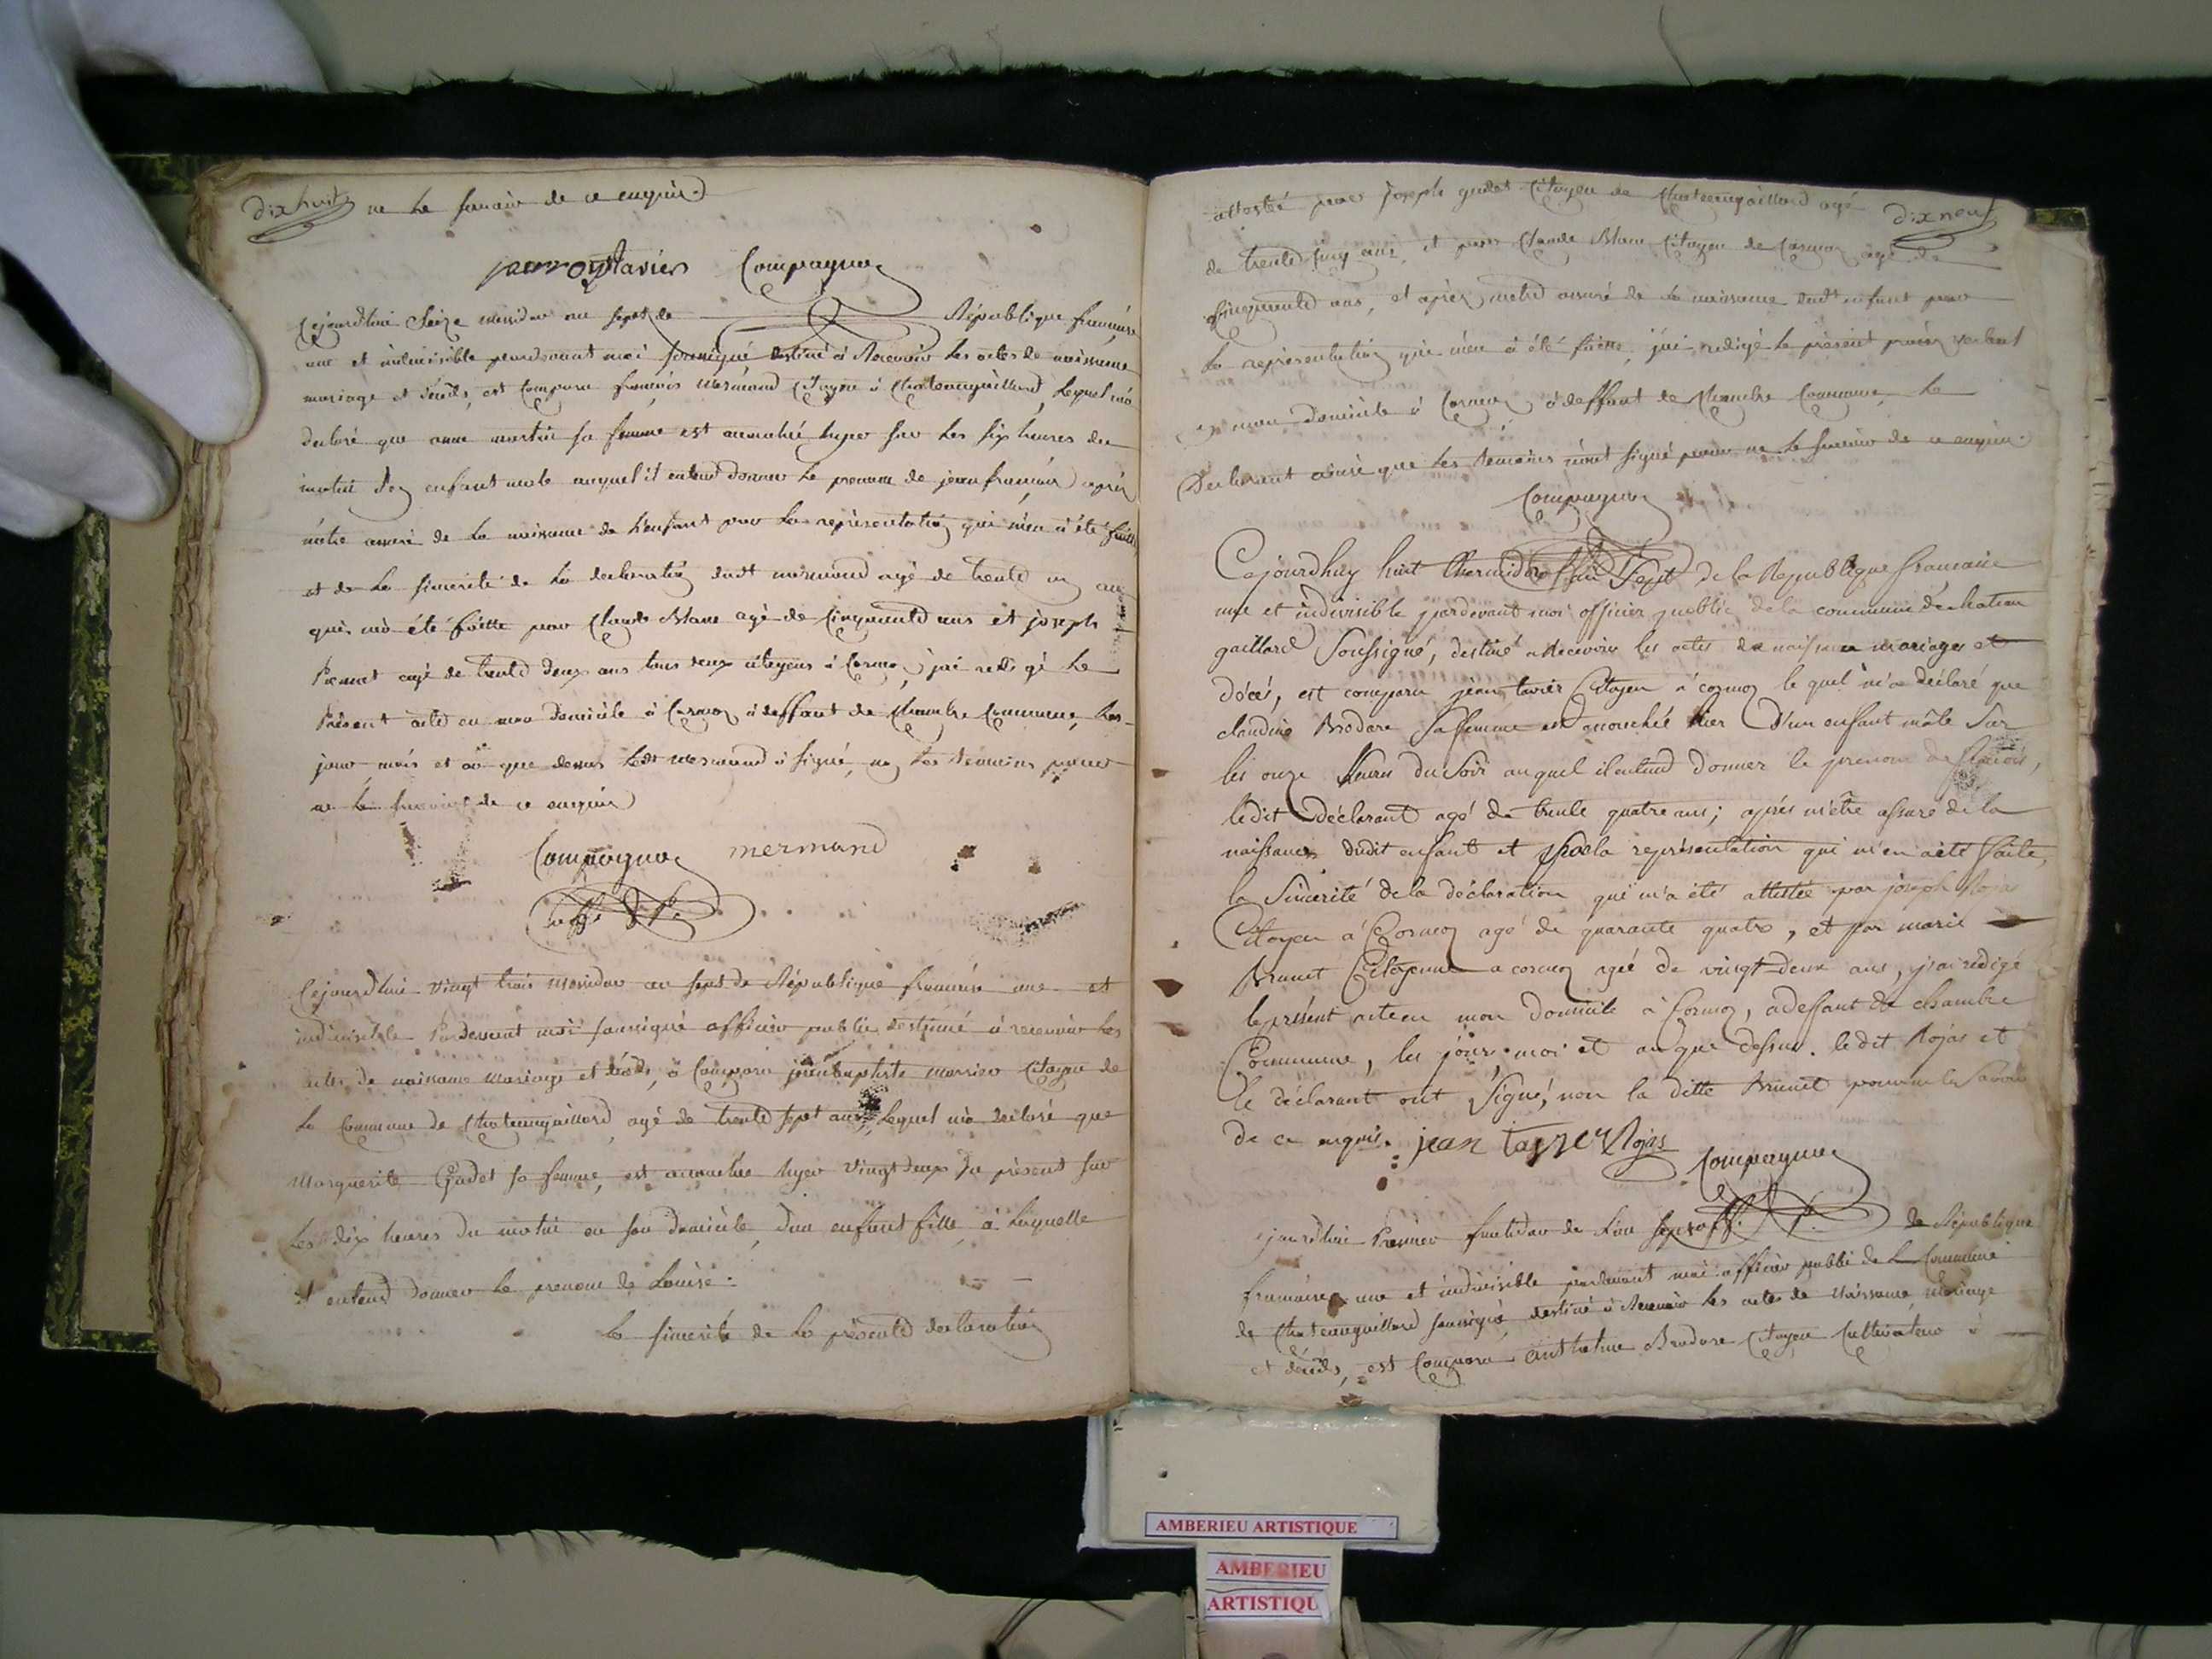 dix huit ne le savoir de ce enquis
jean Tavier Compagnon
Cejourdhui Seize messidor an sept de République française
une et indivisible pardevant moi soussigné destiné à Recevoir les actes de naissance
mariage et décès, est comparu françois mermand Citoyen à Chateaugaillard, lequel m'à
declaré que anne martin sa femme est accouchée hyer sur les six heures du
matin d'un enfant male auquel il entend donner le prenom de jean françois après
m'être assuré de la naissance de l'enfant par la représentation qui m'en à été faitte
et de la sincerité de la declaration dudt mermand agé de trente un an
qui m'à été faitte par Claude Blanc agé de cinquante ans et joseph
Brunet agé de trente deux ans tous deux citoyens à Cormoz, j'ai redigé le
Présent acte en mon Domicile à Cormoz à deffaut de Chambre Commune, les
jour mois et an que dessus ledt mermand à signé, non les témoins pour
ne le savoir de ce enquis
Compagnon mermand
off. P.
Cejourdhui vingt trois messidor an sept de République française une et
indivisible Pardevant moi soussigné officier public destiné à recevoir les
actes de naissance mariage et décès, à Comparu jean baptiste Citoyen de
la Commune de Chateaugaillard, agé de trente sept ans, Lequel m'à declaré que
Marguerite Gudet sa femme, est accouchée hyer vingt deux du présent sur
les dix heures du matin en son domicile, d'un enfant fille, à laquelle
il entend donner le prenom de Louise.
la sincerité de la présente declaration
attesté par Joseph gudet Citoyen de Chateaugaillard agé dix neuf
de trente cinq ans, et par Claude Blanc Citoyen de Cormoz agé de
cinquante ans, et après m'etre assuré de la naissance dudt enfant par
la représentation qui m'en à été faitte, j'ai redigé le présent procès verbal
en mon Domicile à Cormoz, à deffaut de Chambre Commune, le
Declarant ainsi que les témoins n'ont signé pour ne le savoir de ce enquis.
Compagnon
Cejourdhuy huit thermidor l'an Sept de la République française
une et indivisible pardevant moi officier public de la commune de chateau
gaillard Soussigné, destiné a Recevoir les actes de naissance mariages et
décès, est comparu jean tavier Citoyen a cormoz le quel m'a déclaré que
claudine Brodare Sa femme est accouchée hier D'un enfant mâle Sur
les onze heures du Soir auquel il entend donner le prenom de françois,
ledit déclarant agé de trente quatre ans; après m'être assuré de la
naissance dudit enfant et par la représentation qui m'en a été faite,
la Sincerité de la déclaration qui m'a été attestée par joseph Rojas
Citoyen a Cormoz agé de quarante quatre, et par marie
Brunet Citoyenne a cormoz agée de vingt deux ans, j'ai redigé
le présent acte en mon domicile a Cormoz, a deffaut de chambre
Commune, les jour, moi et an que dessus. ledit Rojas et
le déclarant ont Signé, non la ditte Brunet pour ne le Savoir
de ce enquis. jean tavier Rojas
Compagnon
off. P.
cejourdhui Premier fructidor de l'an sept de République
française une et indivisible pardevant moi officier public de la Commune
de Chateaugaillard soussigné, destiné à Recevoir les actes de Naissance, Mariage
et décès, est Comparu anthelme Brodare Citoyen Cultivateur à
AMBERIEU ARTISTIQUE
AMBERIEU
ARTISTIQU